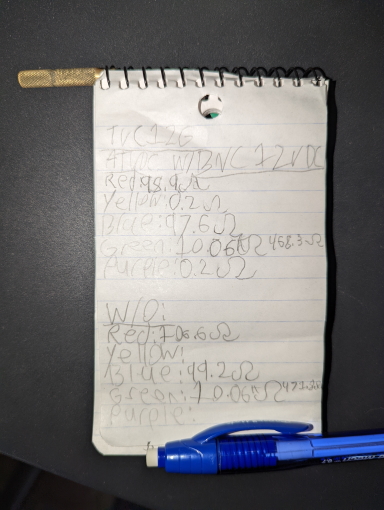 TVC12G
W/BNC 12VDC
Red:98.9Ω
Yellow:0.2Ω
Blue:97.6Ω
Green:10.06Ω 468.3Ω
Purple:0.2Ω
W/O:
Red:106.6Ω
Yellow:
Blue:99.2Ω
Green:10.06Ω
Purple: